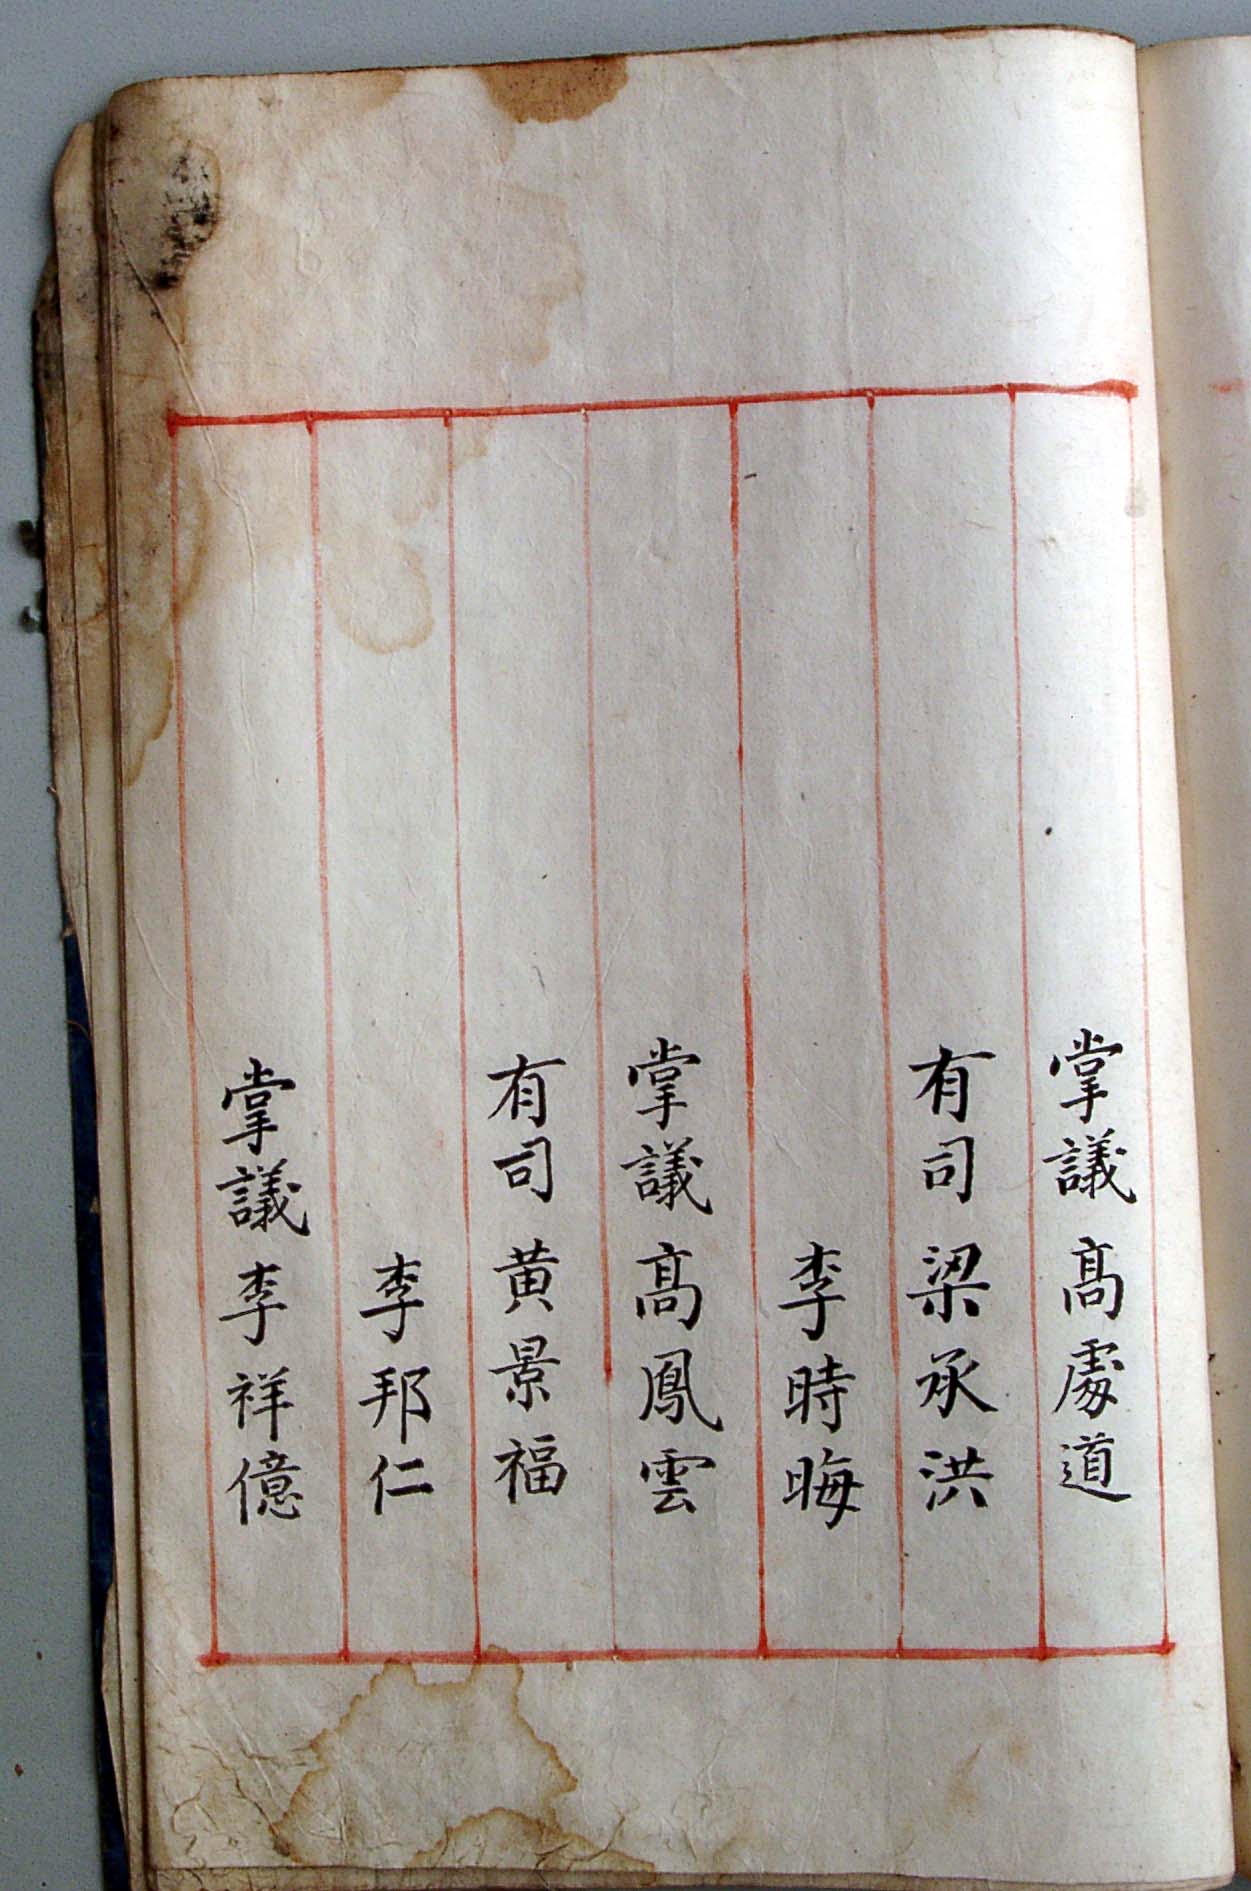 掌議高處道
有司梁承洪
李時晦
掌議高鳳雲
有司黃景福
李邦仁
掌議李祥億